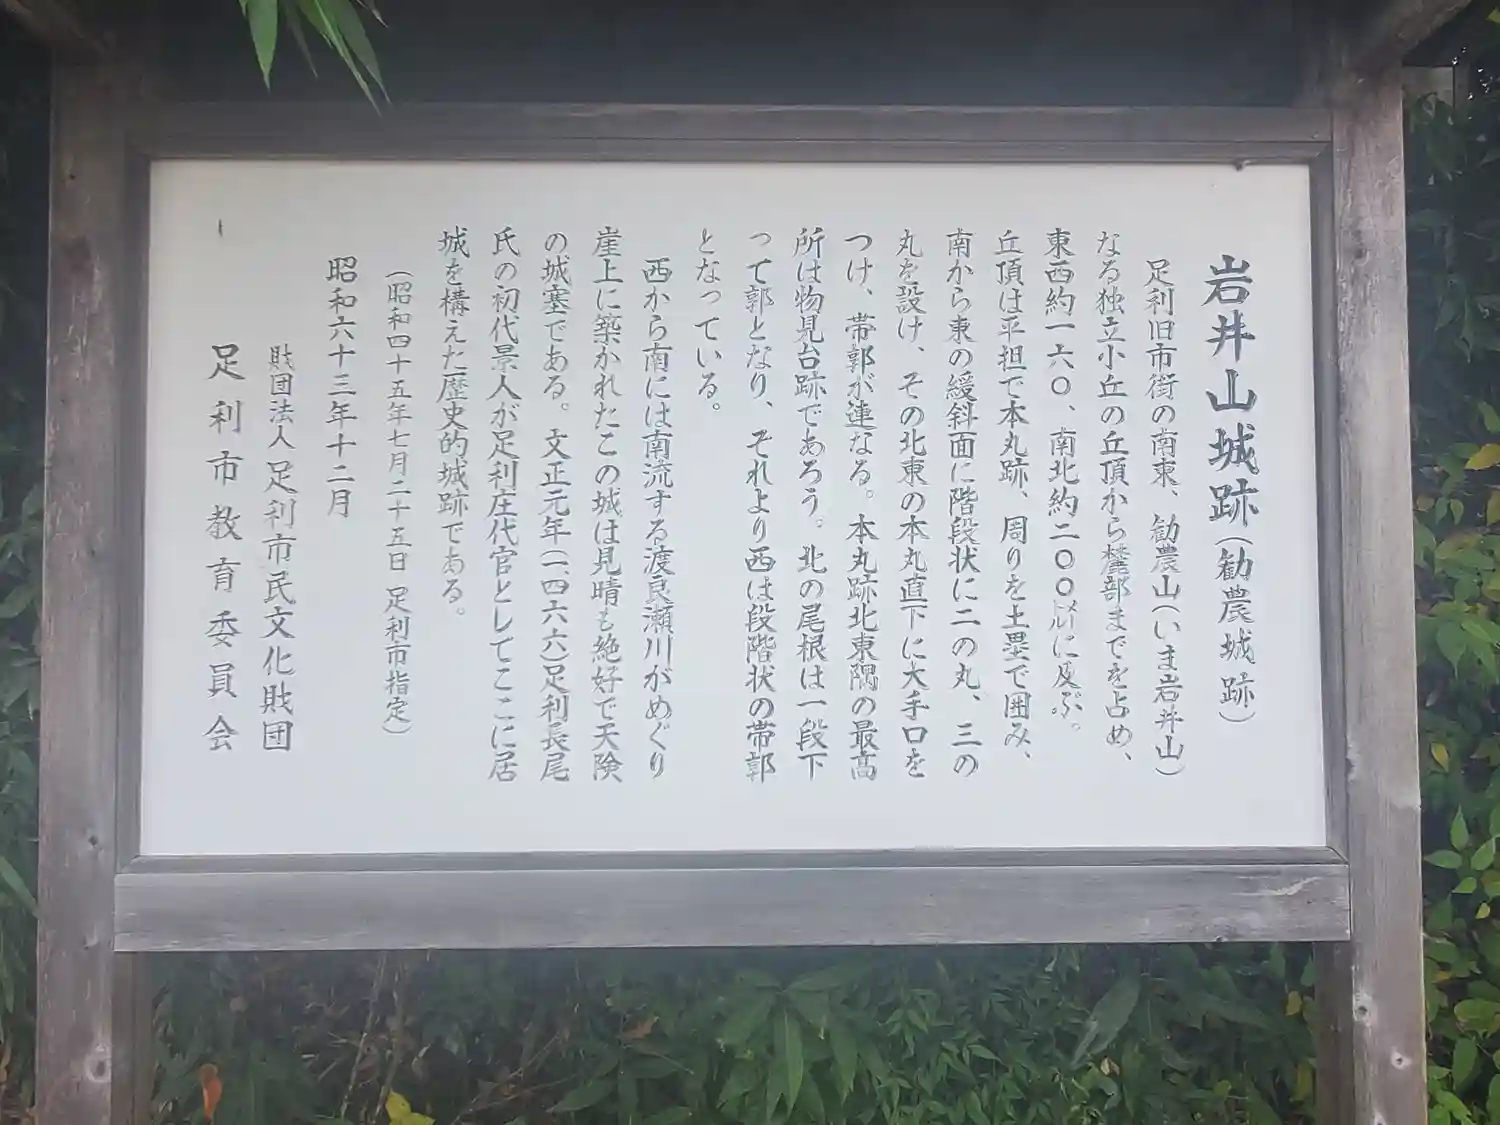 岩井山城跡(勧農城跡)
足利旧市街の南東、勧農山(いま岩井山)
なる独立小丘の丘頂から麓部までを占め、
東西約一六〇、南北約二〇〇㍍に及ぶ。
丘頂は平担で本丸跡、周りを土塁で囲み、
南から東の緩斜面に階段状に二の丸、三の
丸を設け、その北東の本丸直下に大手口を
つけ、帯郭が連なる。本丸跡北東隅の最高
所は物見台跡であろう。北の尾根は一段下
って郭となり、それより西は段階状の帯郭
となっている。
西から南には南流する渡良瀬川がめぐり
崖上に築かれたこの城は見晴も絶好で天険
の城塞である。文正元年(一、四六六)足利長尾
氏の初代景人が足利庄代官としてここに居
城を構えた歴史的城跡である。
(昭和四十五年七月二十五日 足利市指定)
昭和六十三年十二月
財団法人 足利市民文化財団
足利市教育委員会